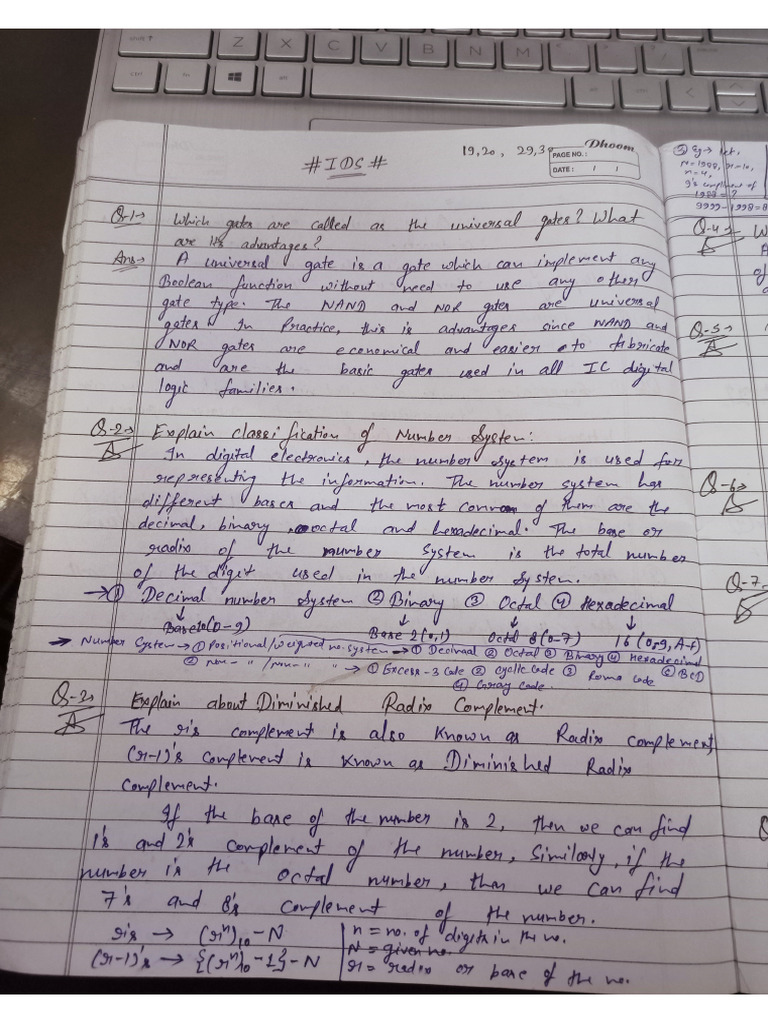 shift ↑ Z X C V B N M
ctrl fn alt alt
#IDS#
19,20, 29,3
Dhoom
PAGE NO.:
DATE: / /
Q-1→ Which gates are called as the universal gates? What
are its advantages?
Ans→ A universal gate is a gate which can implement any
Boolean function without need to use any other
gate type. The NAND and NOR gates are universal
gates. In Practice, this is advantages since NAND and
NOR gates are economical and easier to fabricate
and are the basic gates used in all IC digital
logic families.
Q-2→ Explain classification of Number System:
A→ In digital electronics, the number system is used for
representing the information. The number system has
different bases and the most common of them are the
decimal, binary, octal and hexadecimal. The base or
radix of the number system is the total number
of the digit used in the number system.
→① Decimal number System ② Binary ③ Octal ④ Hexadecimal
↓ ↓ ↓ ↓
Base10(0-9) Base 2(0,1) Octal 8(0-7) 16(0-9, A-f)
→ Number System → ① Positional/weighted no. system → ① Decimal ② Octal ③ Binary ④ Hexadecimal
② non- " /non- " " → ① Excess-3 Code ② cyclic code ③ Roma code ⑤ BCD
④ Gray code.
Q-3→ Explain about Diminished Radix Complement.
A→ The r's complement is also known as Radix complement,
(r-1)'s complement is known as Diminished Radix
complement.
If the base of the number is 2, then we can find
1's and 2's complement of the number, Similarly, if the
number is the octal number, then we can find
7's and 8's complement of the number.
r's → (rⁿ)₁₀ - N
n = no. of digits in the no.
N = given no.
(r-1)'s → {(rⁿ)₁₀ - 1} - N
r = radix or base of the no.
③ Eg→ let,
N=1998, r=10,
n=4,
9's compliment of
1998 = ?
9999-1998=8
Q-4→ W
A
of
Q-5→
A
Q-6→
A
Q-7→
A
Q